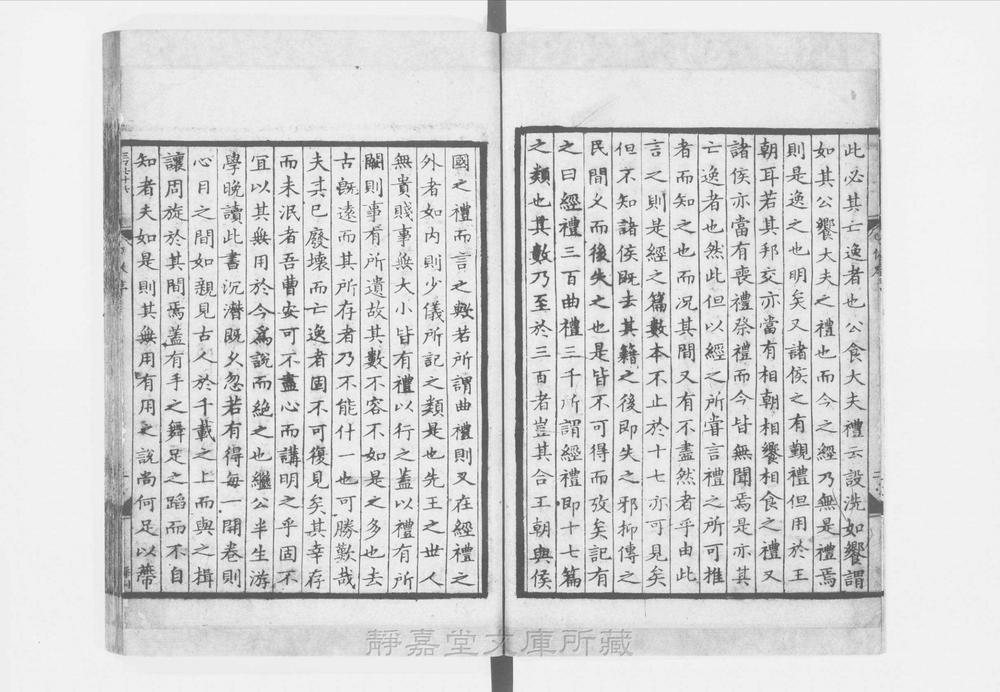 此必其亡逸者也公食大夫禮云設洗如饗謂
如其公饗大夫之禮也而今之經乃無是禮焉
則是逸之也明矣又諸侯之有覲禮但用於王
朝耳若其邦交亦當有相朝相饗相食之禮又
諸侯亦當有喪禮祭禮而今皆無聞焉是亦其
亡逸者也然此但以經之所嘗言禮之所可推
者而知之也而况其間又有不盡然者乎由此
言之則是經之篇數本不止於十七亦可見矣
但不知諸侯既去其籍之後即失之邪抑傳之
民間久而後失之也是皆不可得而攷矣記有
之曰經禮三百曲禮三千所謂經禮即十七篇
之類也其數乃至於三百者豈其合王朝與侯
國之禮而言之歟若所謂曲禮則又在經禮之
外者如内則少儀所記之類是也先王之世人
無貴賤事無大小皆有禮以行之蓋以禮有所
闕則事有所遺故其數不容不如是之多也去
古既遠而其所存者乃不能什一也可勝歎哉
夫其已廢壞而亡逸者固不可復見矣其幸存
而未泯者吾曹安可不盡心而講明之乎固不
宜以其無用於今爲說而絶之也繼公半生游
學晚讀此書沉潛既久忽若有得每一開卷則
心目之間如親見古人於千載之上而與之揖
讓周旋於其間焉蓋有手之舞足之蹈而不自
知者夫如是則其無用有用之說尚何足以蔕
靜嘉堂文庫所藏